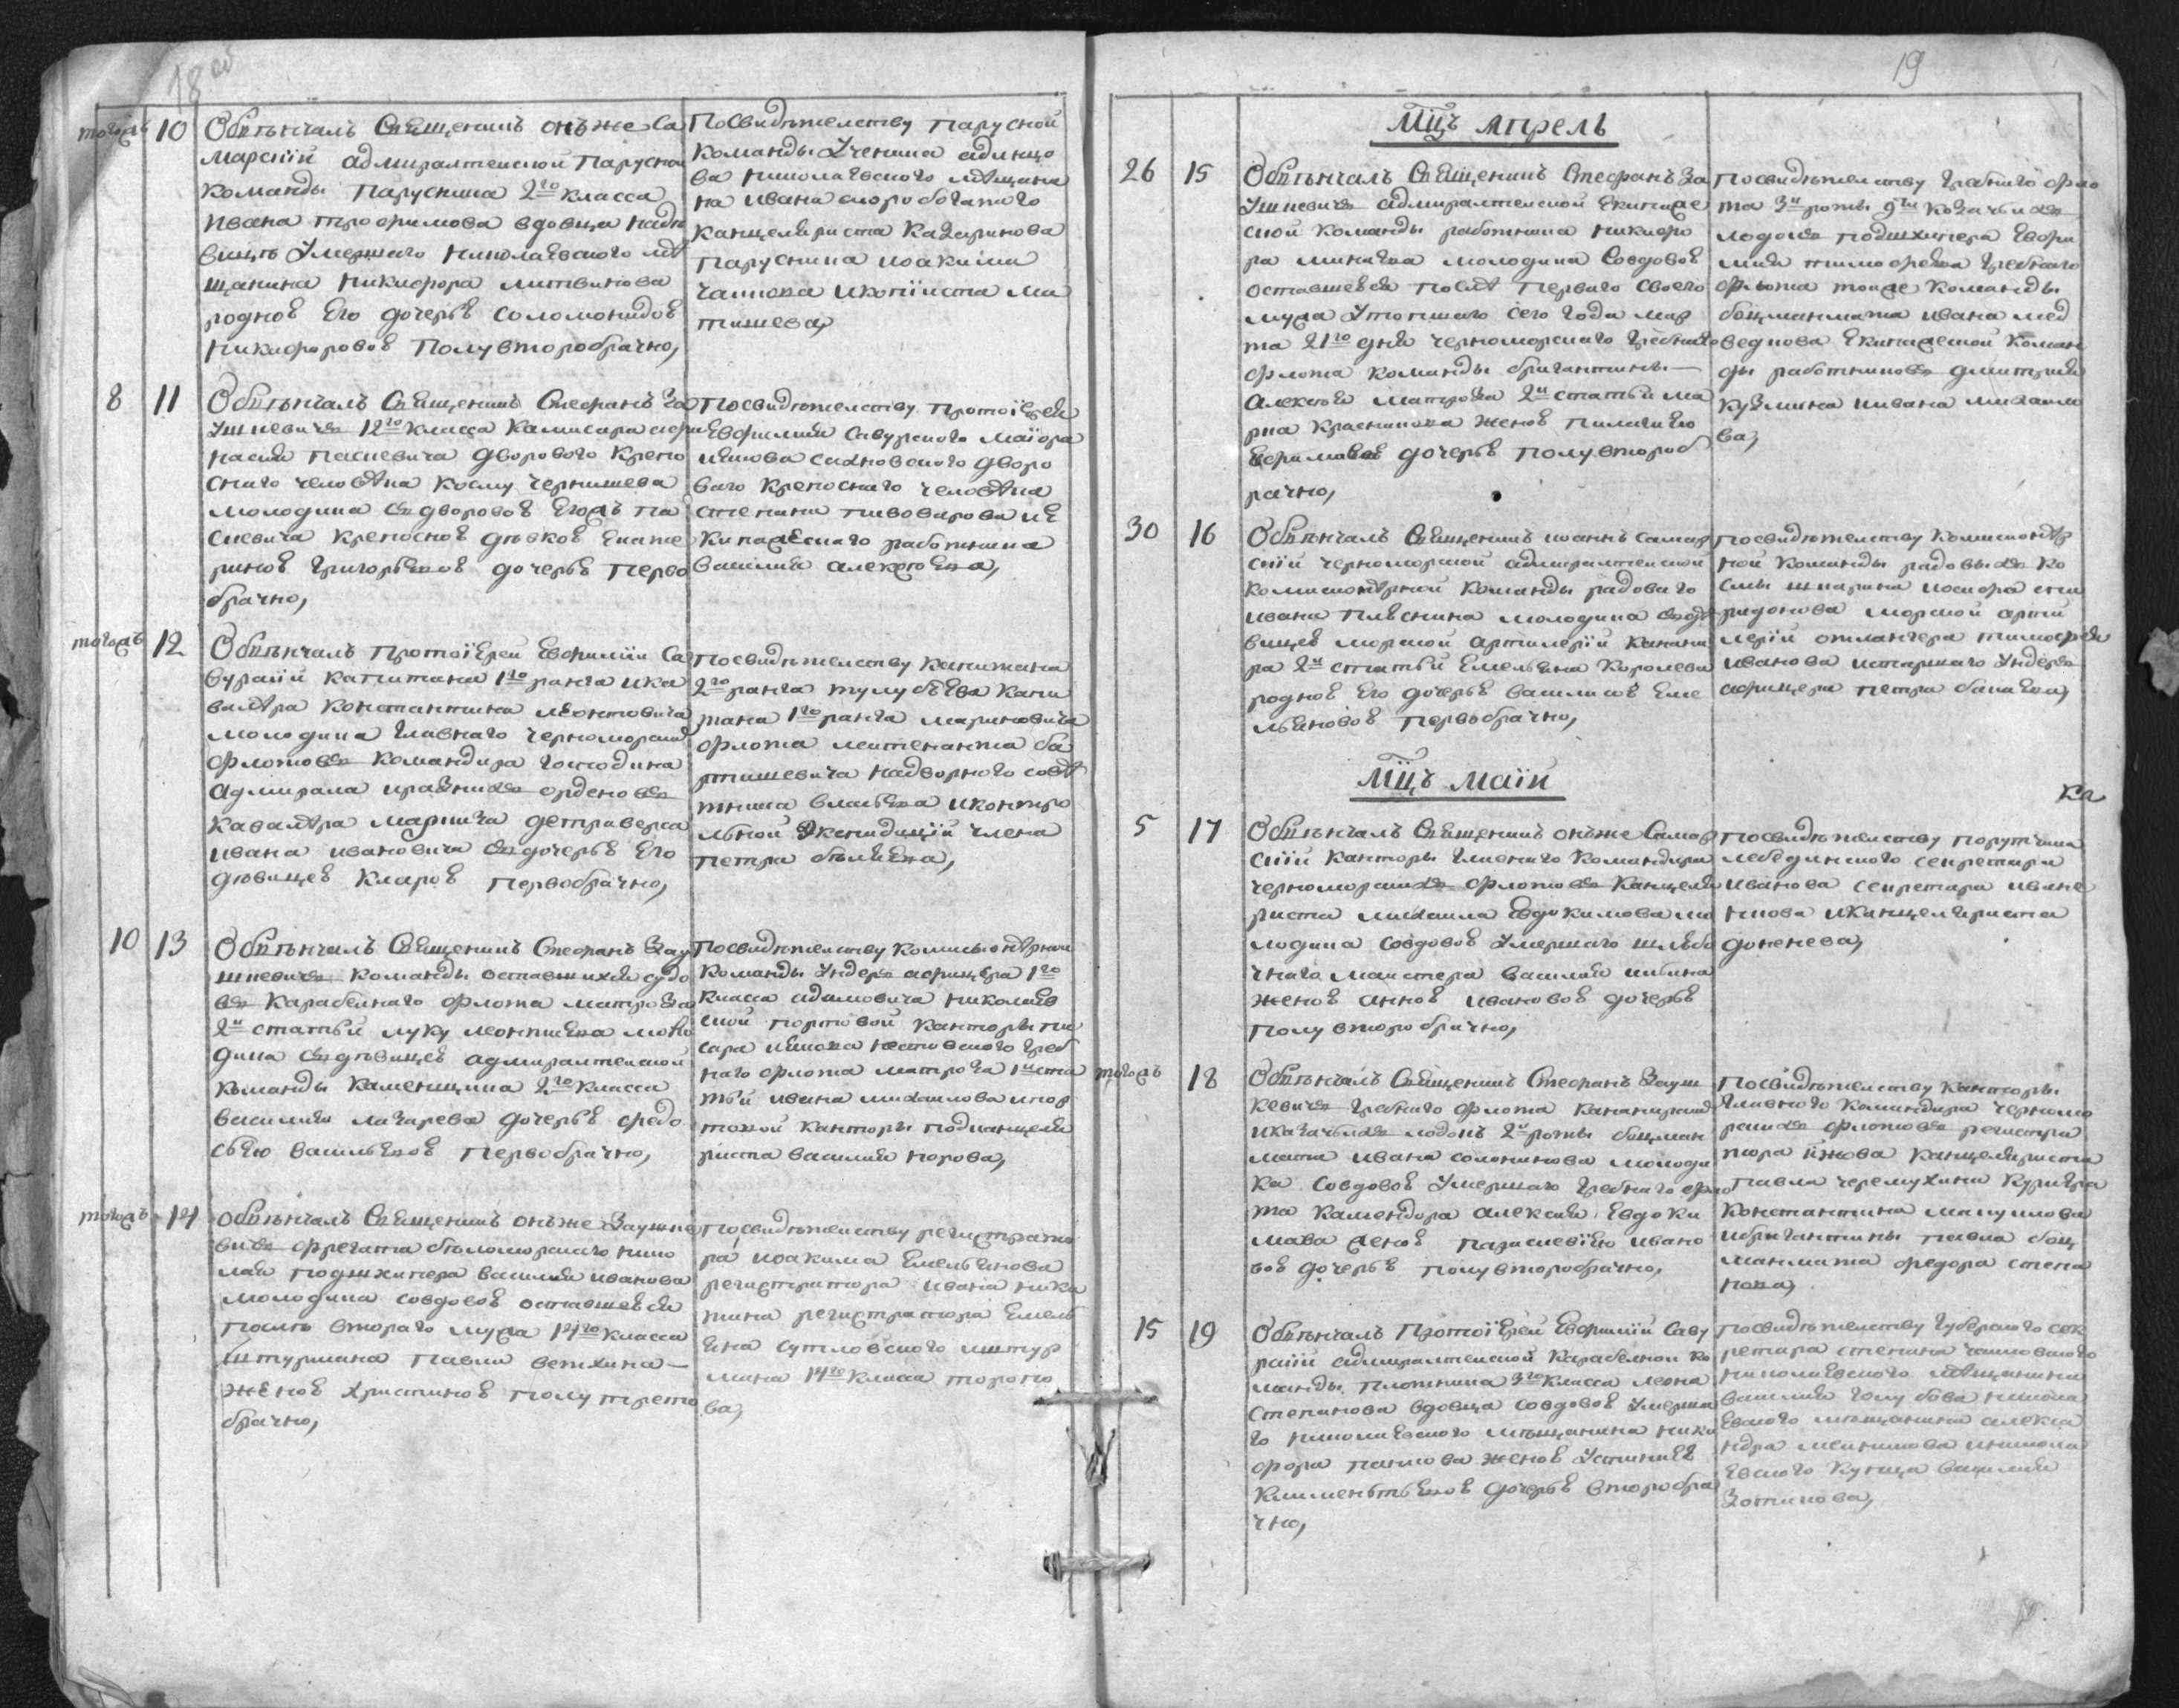 18 об
тогожъ 10 Обвѣнчалъ Священникъ онъже Са
марскій адмиралтейской парусной
команды парусника 2го класса
Ивана трофимова вдовца надѣ
вицѣ умершаго николаевского мѣ
щанина никифора литвинова
родной его дочерѣ соломонидой
никифоровой полувторобрачно,
Посвидѣтелству парусной
команды ученика одинцо
ва николаевского мѣщани
на ивана скоробогатаго
канцеляриста казаринова
парусника иоакима
чаикова икопіиста ма
тишева,
8 11 Обвѣнчалъ Священникъ Стефанъ За
ушкевичъ 12го класса камисара
насия паскевича дворового крепо
снаго человѣка косму чернышева
молодика съдворовой Егожъ па
скевича крепосной дѣвкой екате
риной григорьевой дочерѣ перво
брачно,
посвидѣтелству протоіерея
Евфимия савурского маіора
дворо
ваго крепоснаго человѣка
степана пивоварова иЕ
кипажескаго работника
василия алексѣева,
тогожъ 12 Обвѣнчалъ протоіерей Евфимій Са
вурскій капитана 1го ранга ика
валѣра константина леонтовича
молодика главнаго черноморскихъ
флотовъ командира господина
адмирала иразныхъ орденовъ
кавалѣра маркиза детраверсе
ивана ивановича съдочерѣ его
дѣвицей кларой первобрачно,
посвидѣтелству капитана
2го ранга тулубѣева капи
тана 1го ранга
флота леитенанта ба
ртишевича надворного совѣ
тника иконтро
льной экспедиціи члена
петра беляева,
10 13 Обвѣнчалъ Священникъ Стефанъ Зау
шкевичъ команды оставшихся судо
въ карабелнаго флота матроза
2й статьи луку леонтиева моло
дика съдѣвицей адмиралтейской
команды каменщика 2го класса
василия лазарева дочерѣ федо
сьею васильевой первобрачно,
Посвидѣтелству комисионѣрной
команды ундеръ афицера 1го
класса адамовича николаев
ской портовой канторы пи
саря греб
наго флота матроза 1й ста
тьи ивана михаилова ипор
товой канторы подканцеля
риста василия норова,
тогожъ 14 Обвѣнчалъ Священникъ онъже Заушке
вичъ фрегата николая
подшхипера василия иванова
молодика совдовой оставшейся
послѣ втораго мужа 14го класса
штурмана павла ветхина –
женой христиной полутрето
брачно,
посвидѣтелству регистрато
ра иоакима емельянова
регистратора ивана ника
тина регистратора емель
яна сутловского штур
мана 14го класса торопо
ва,
19
Мцъ Апрель
26 15 Обвѣнчалъ Священникъ Стефанъ За
ушкевичъ адмиралтейской екипаже
ской команды работника никифо
ра минаева молодика Совдовой
оставшейся послѣ перваго своего
мужа утопшаго сего года мар
та 21го дня черноморскаго гребнаго
флота команды бригантины –
Алексѣя матроза 2й статьи ма
рка красникова женой пилагиею
Ефимовой дочерѣ полувтороб
рачно,
посвидѣтелству гребнаго фло
та 3й роты казачьихъ
лодокъ подшхипера Евфи
мия тимофеева гребнаго
флота тоиже команды
боцманмата ивана мед
ведкова екипажеской коман
ды работниковъ дмитрия
кузмина иивана михаило
ва,
30 16 Обвѣнчалъ Священникъ иоаннъ самар
скій черноморской адмиралтейской
комисионѣрной команды радоваго
ивана плѣскина молодика съдѣ
вицей морской артилерій канани
ра 2й статьи Емельяна Королева
родной его дочерѣ василисой еме
льяновой первобрачно,
посвидѣтелству комисионѣр
ной команды радовыхъ ко
смы шкарина иосифа спи
ридонова морской арти
лерій гантлангера тимофея
иванова истаршаго ундеръ
афицера петра бакаева,
Мцъ Маій
ка
5 17 Обвѣнчалъ Священникъ онъже Самар
скій канторы главнаго командира
черноморскихъ флотовъ канцеля
риста михаила евдокимова мо
лодика совдовой умершаго шлюбо
чнаго маистера василия
женой анной ивановой дочерѣ
полувторобрачно,
посвидѣтелству порутчика
лебединского секретаря
иванова секретаря
иканцеляриста
доненева,
тогожъ 18 Обвѣнчалъ Священникъ Стефанъ Зауш
кевичъ гребнаго флота канонирскихъ
иказачьихъ лодокъ 2й роты боцман
мата ивана солоникова молоди
ка совдовой умершаго гребнаго фло
та камендора алексия Евдоки
мова женой парасковіею ивано
вой дочерѣ полувторобрачно,
Посвидѣтелству канторы
главнаго командира черномо
рскихъ флотовъ регистра
тора канцеляриста
павла черемухина курьера
константина мануилова
ибригантины павла боц
манмата федора степа
нова,
15 19 Обвѣнчалъ Протоіерей Евфимій Саву
рскій адмиралтейской карабелной ко
манды плотника 3го класса леона
Степанова вдовца совдовой умерша
го николаевского мѣщанина ники
фора панкова женой устиниею
климентьевой дочерѣ второбра
чно,
посвидѣтелству губерского сек
ретаря степана
николаевского мѣщанина
василия голубова никола
евского мѣщанина алекса
ндра меншикова иникола
евского купца василия
Зотикова,